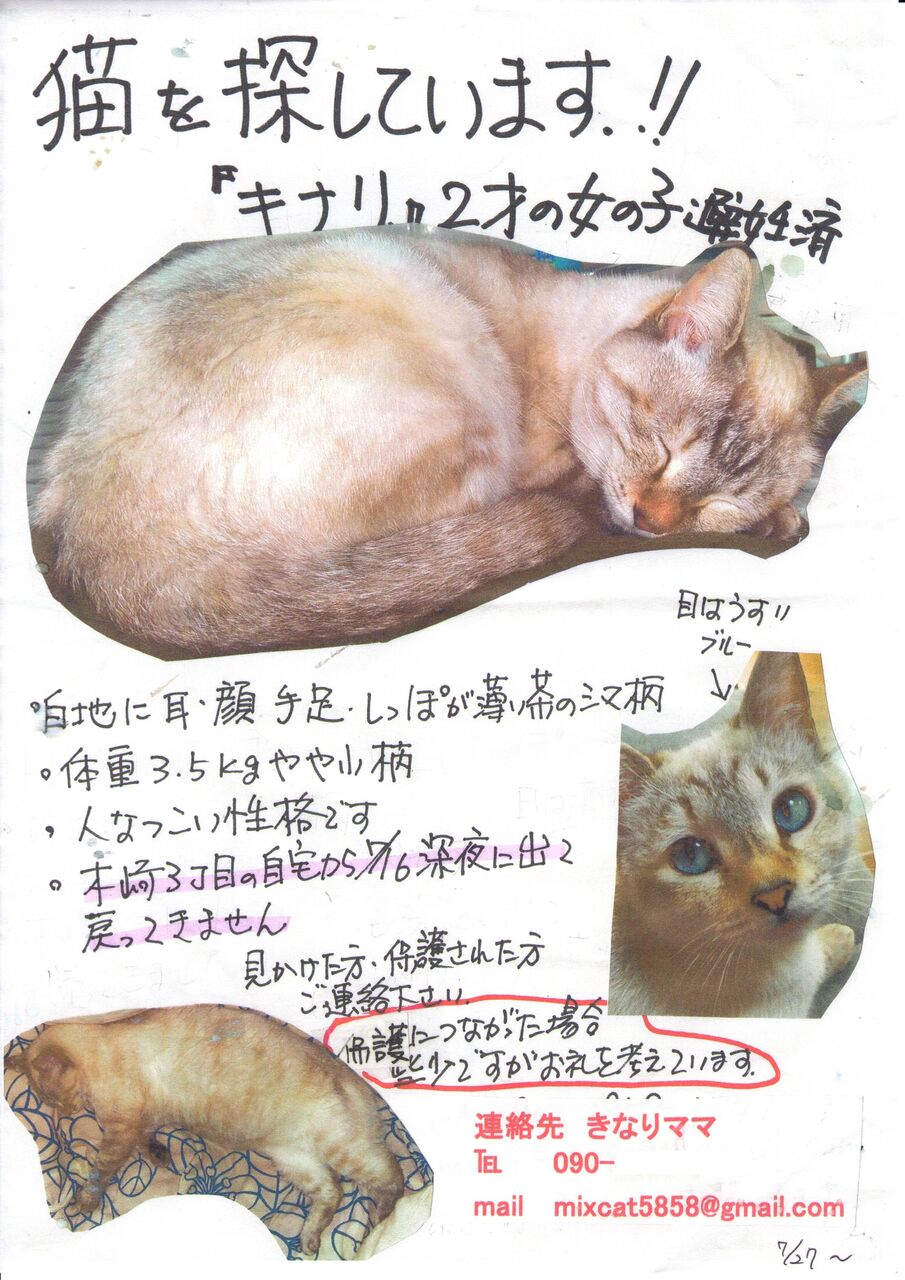 猫を探しています.!!
『キナリ』2才の女の子避妊済
目はうすい
ブルー
白地に耳・顔 手足・しっぽが薄い茶のシマ柄
体重3.5kgやや小柄
人なつこい性格です
木崎3丁目の自宅から7/16深夜に出て
戻ってきません
見かけた方、保護された方
ご連絡下さい.
保護につながった場合
些少ですがお礼を考えています.
連絡先 きなりママ
℡ 090-
mail mixcat5858@gmail.com
7/27 〜